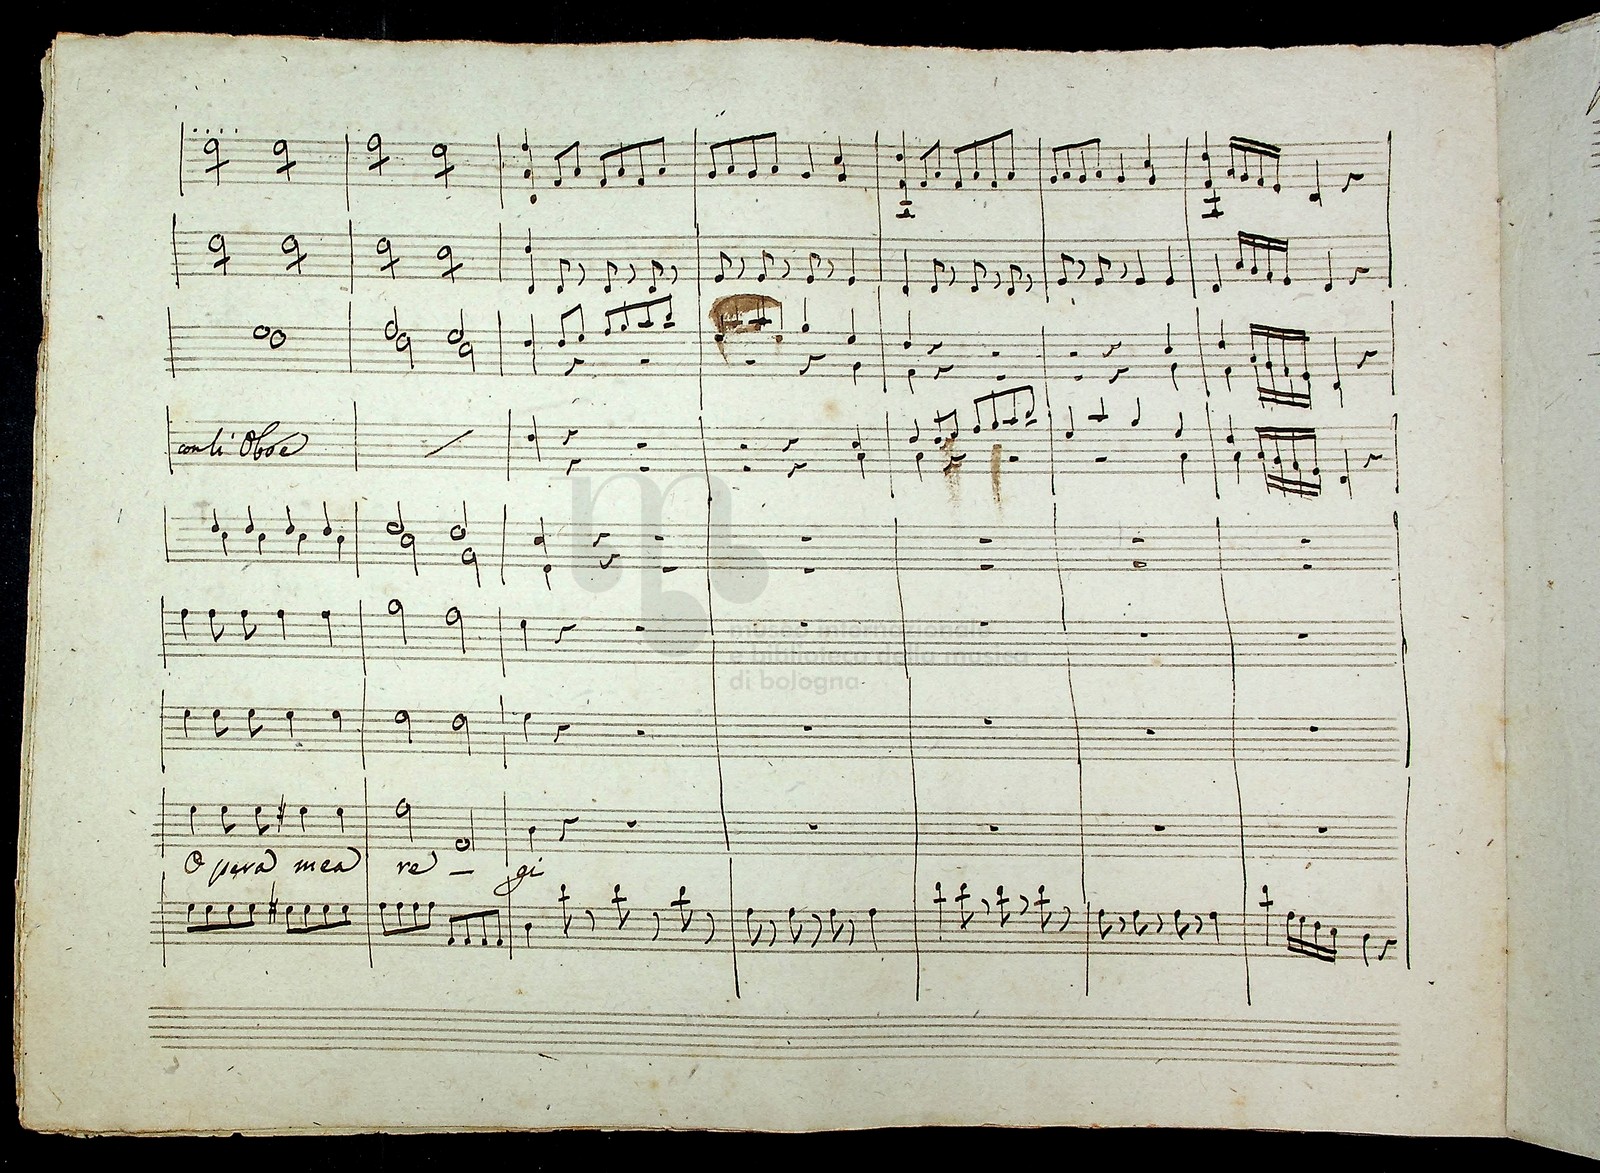 con li Oboe
museo internazionale
e biblioteca della musica
di bologna
Opera mea re _ gi